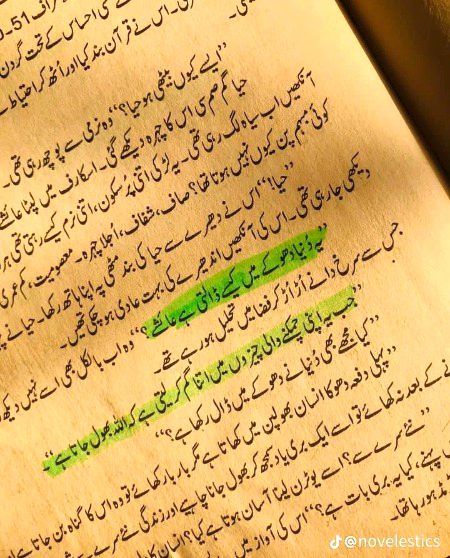 کے احساس کے تحت گردن
دی۔ اس نے قرآن بند کیا اور اُٹھ کر احتیاط سے
’’ایسے کیوں بیٹھی ہو حیا؟‘‘ وہ نرمی سے پوچھ رہی تھی۔
حیا گم صم سی اس کا چہرہ دیکھے گئی۔ اسکارف میں لپٹا عائشے
آنکھیں اب سیاہ لگ رہی تھی۔ یہ لڑکی اتنی پُرسکون، اتنی نرم کیسے رہتی تھی
کوئی مبہم پن کیوں نہیں ہوتا تھا؟ صاف، شفاف، اُجلا چہرہ۔ معصومیت، کم عمری
’’حیا!‘‘ اس نے دھیرے سے حیا کی بند مٹھی پہ اپنا ہاتھ رکھا۔ حیا نے
دیکھی جا رہی تھی۔ اس کی آنکھیں اندھیرے کی بہت عادی ہو چکی تھیں۔
جس سے سرخ ذرانے اُڑ اُڑ کر فضا میں تحلیل ہو رہے تھے۔
’’یہ دُنیا دھوکے میں کیسے ڈالتی ہے عائشے؟‘‘ وہ اب بالکل بھی اسے نہیں دیکھ
’’جب یہ اپنی چمکنے والی چیزوں میں اتنا گم کر لیتی ہے کہ اللہ بھول جاتا ہے۔‘‘
’’کیا مجھے بھی دُنیا نے دھوکے میں ڈال رکھا ہے؟‘‘
’’پہلی دفعہ دھوکا انسان بھولپن میں کھاتا ہے مگر بار بار کھائے تو وہ اس کا گناہ بن جاتا ہے
کے بعد نہ کھائے تو اسے ایک بری یاد سمجھ کر بھول جانا چاہیے اور زندگی نئے سرے سے
’’نئے سرے سے؟ ایسے یوٹرن لینا آسان ہوتا ہے کیا؟ انسان کا
پہنے، کیا یہ بری بات ہے؟‘‘ اس کی آواز میں
@novelestics